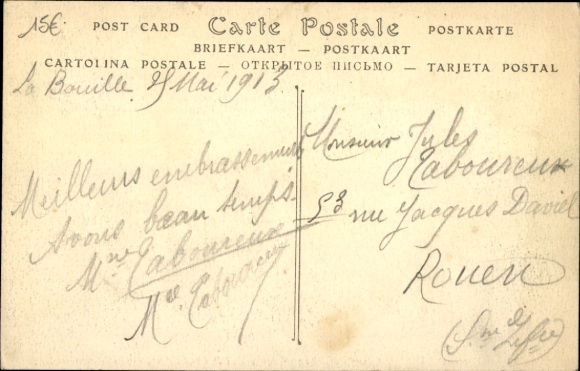 15€
POST CARD Carte Postale POSTKARTE
BRIEFKAART — POSTKAART
CARTOLINA POSTALE — ОТКРЫТОЕ ПИСЬМО — TARJETA POSTAL
La Bouille 25 Mai 1913
Meilleurs embrassements
Avons beau temps.
Mme Laboureux
Mlle Laboureux
Monsieur Jules
Laboureux
53 rue Jacques Daviel
Rouen
(Sne Infre)